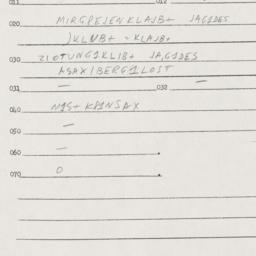 020 MIRGREJENKLAJB+ JAGIDES
JKLNB+ - KLAJB+
030 ZLOTUNG1KLIB+ JAGIDES
ASAX/BERG1LOST
031 — 032 —
040 N1S+ K81NSAX
050 —
060 —
070 O